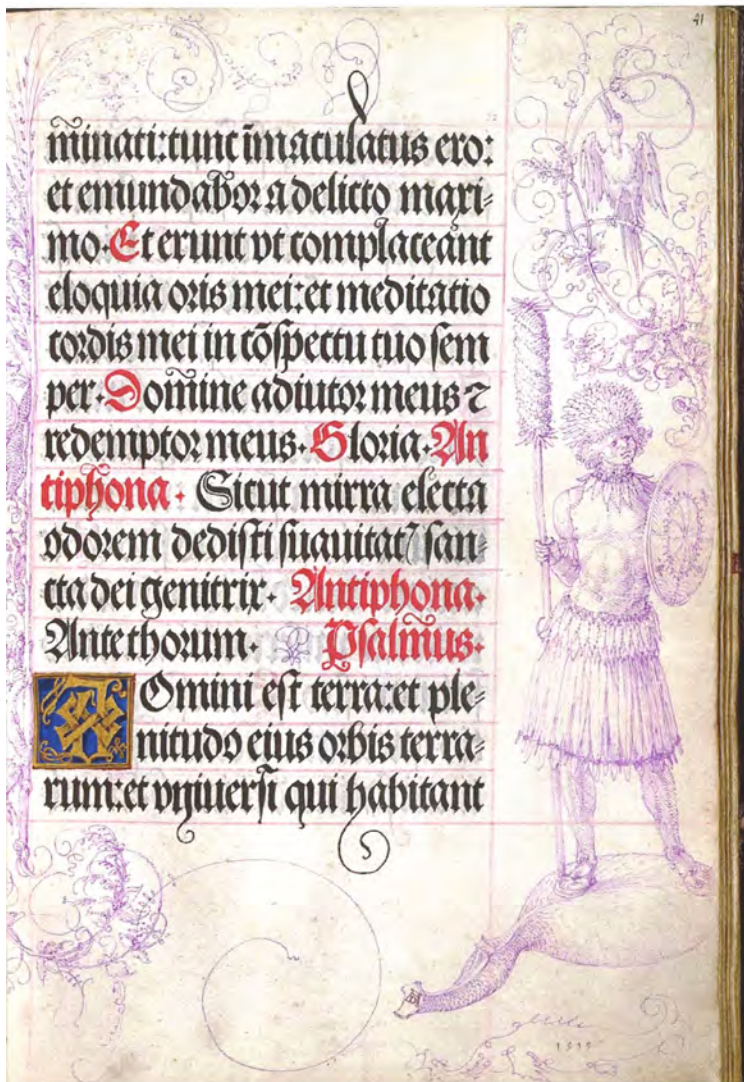 41
m̄inati: tunc īmaculatus ero:
et emundabor a delicto maxi⸗
mo. Et erunt vt complaceant
eloquia oris mei: et meditatio
cordis mei in cōspectu tuo sem
per. Domine adiutor meus ⁊
redemptor meus. Gloria. An
tiphona. Sicut mirra electa
odorem dedisti suauitatſ san⸗
cta dei genitrix. Antiphona.
Ante thorum. Psalm̄us.
Domini est terra: et ple⸗
nitudo eius orbis terra⸗
rum: et vniuersi qui habitant